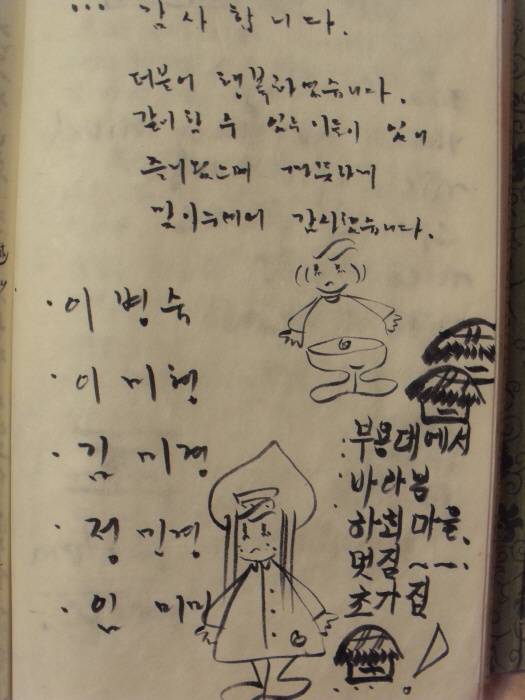 ... 감사 합니다.
더불어 행복하였습니다.
같이할 수 있는 이들이 있어
즐거웠으며
감사했습니다.
· 이 병숙
· 이 미형
· 김 미경
· 정 민경
· 임
: 부용대에서
바라봄
하회 마을.
멋짐 ~~.
초가집